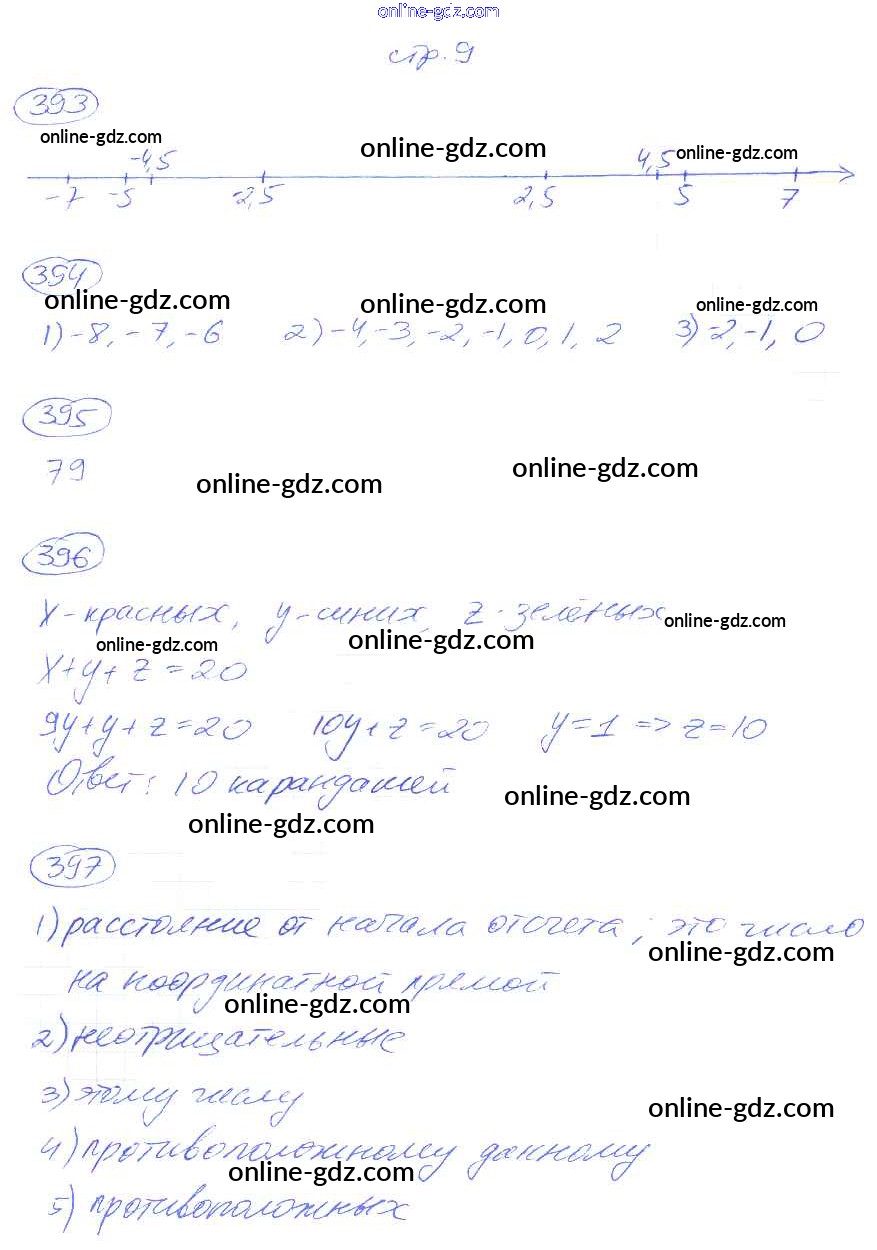 online-gdz.com
стр. 9
393
online-gdz.com
online-gdz.com
online-gdz.com
-4,5 4,5
-7 -5 -2,5 2,5 5 7
394
online-gdz.com online-gdz.com online-gdz.com
1) -8, -7, -6 2) -4, -3, -2, -1, 0, 1, 2 3) -2, -1, 0
395
79
online-gdz.com online-gdz.com
396
x - красных, y - синих, z - зелёных
online-gdz.com
online-gdz.com online-gdz.com
x+y+z=20
9y+y+z=20 10y+z=20 y=1 => z=10
Ответ: 10 карандашей
online-gdz.com
online-gdz.com
397
1) расстояние от начала отсчета; это число
online-gdz.com
на координатной прямой
online-gdz.com
2) неотрицательные
3) этому числу
online-gdz.com
4) противоположному данному
online-gdz.com
5) противоположных